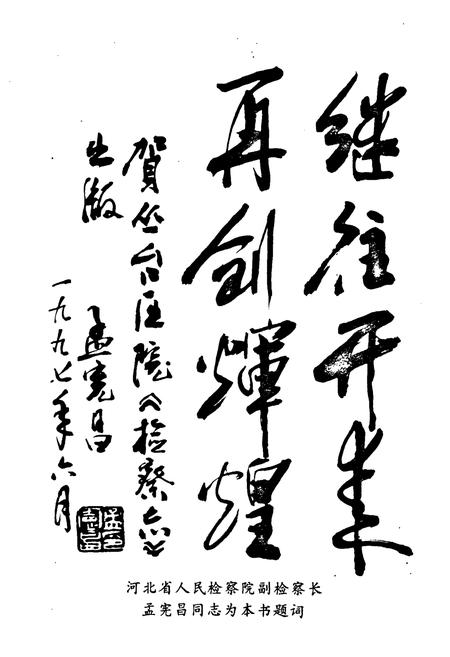 继往开来
再创辉煌
贺丛台区院《检察志》
出版
孟宪昌
一九九七年六月
河北省人民检察院副检察长
孟宪昌同志为本书题词